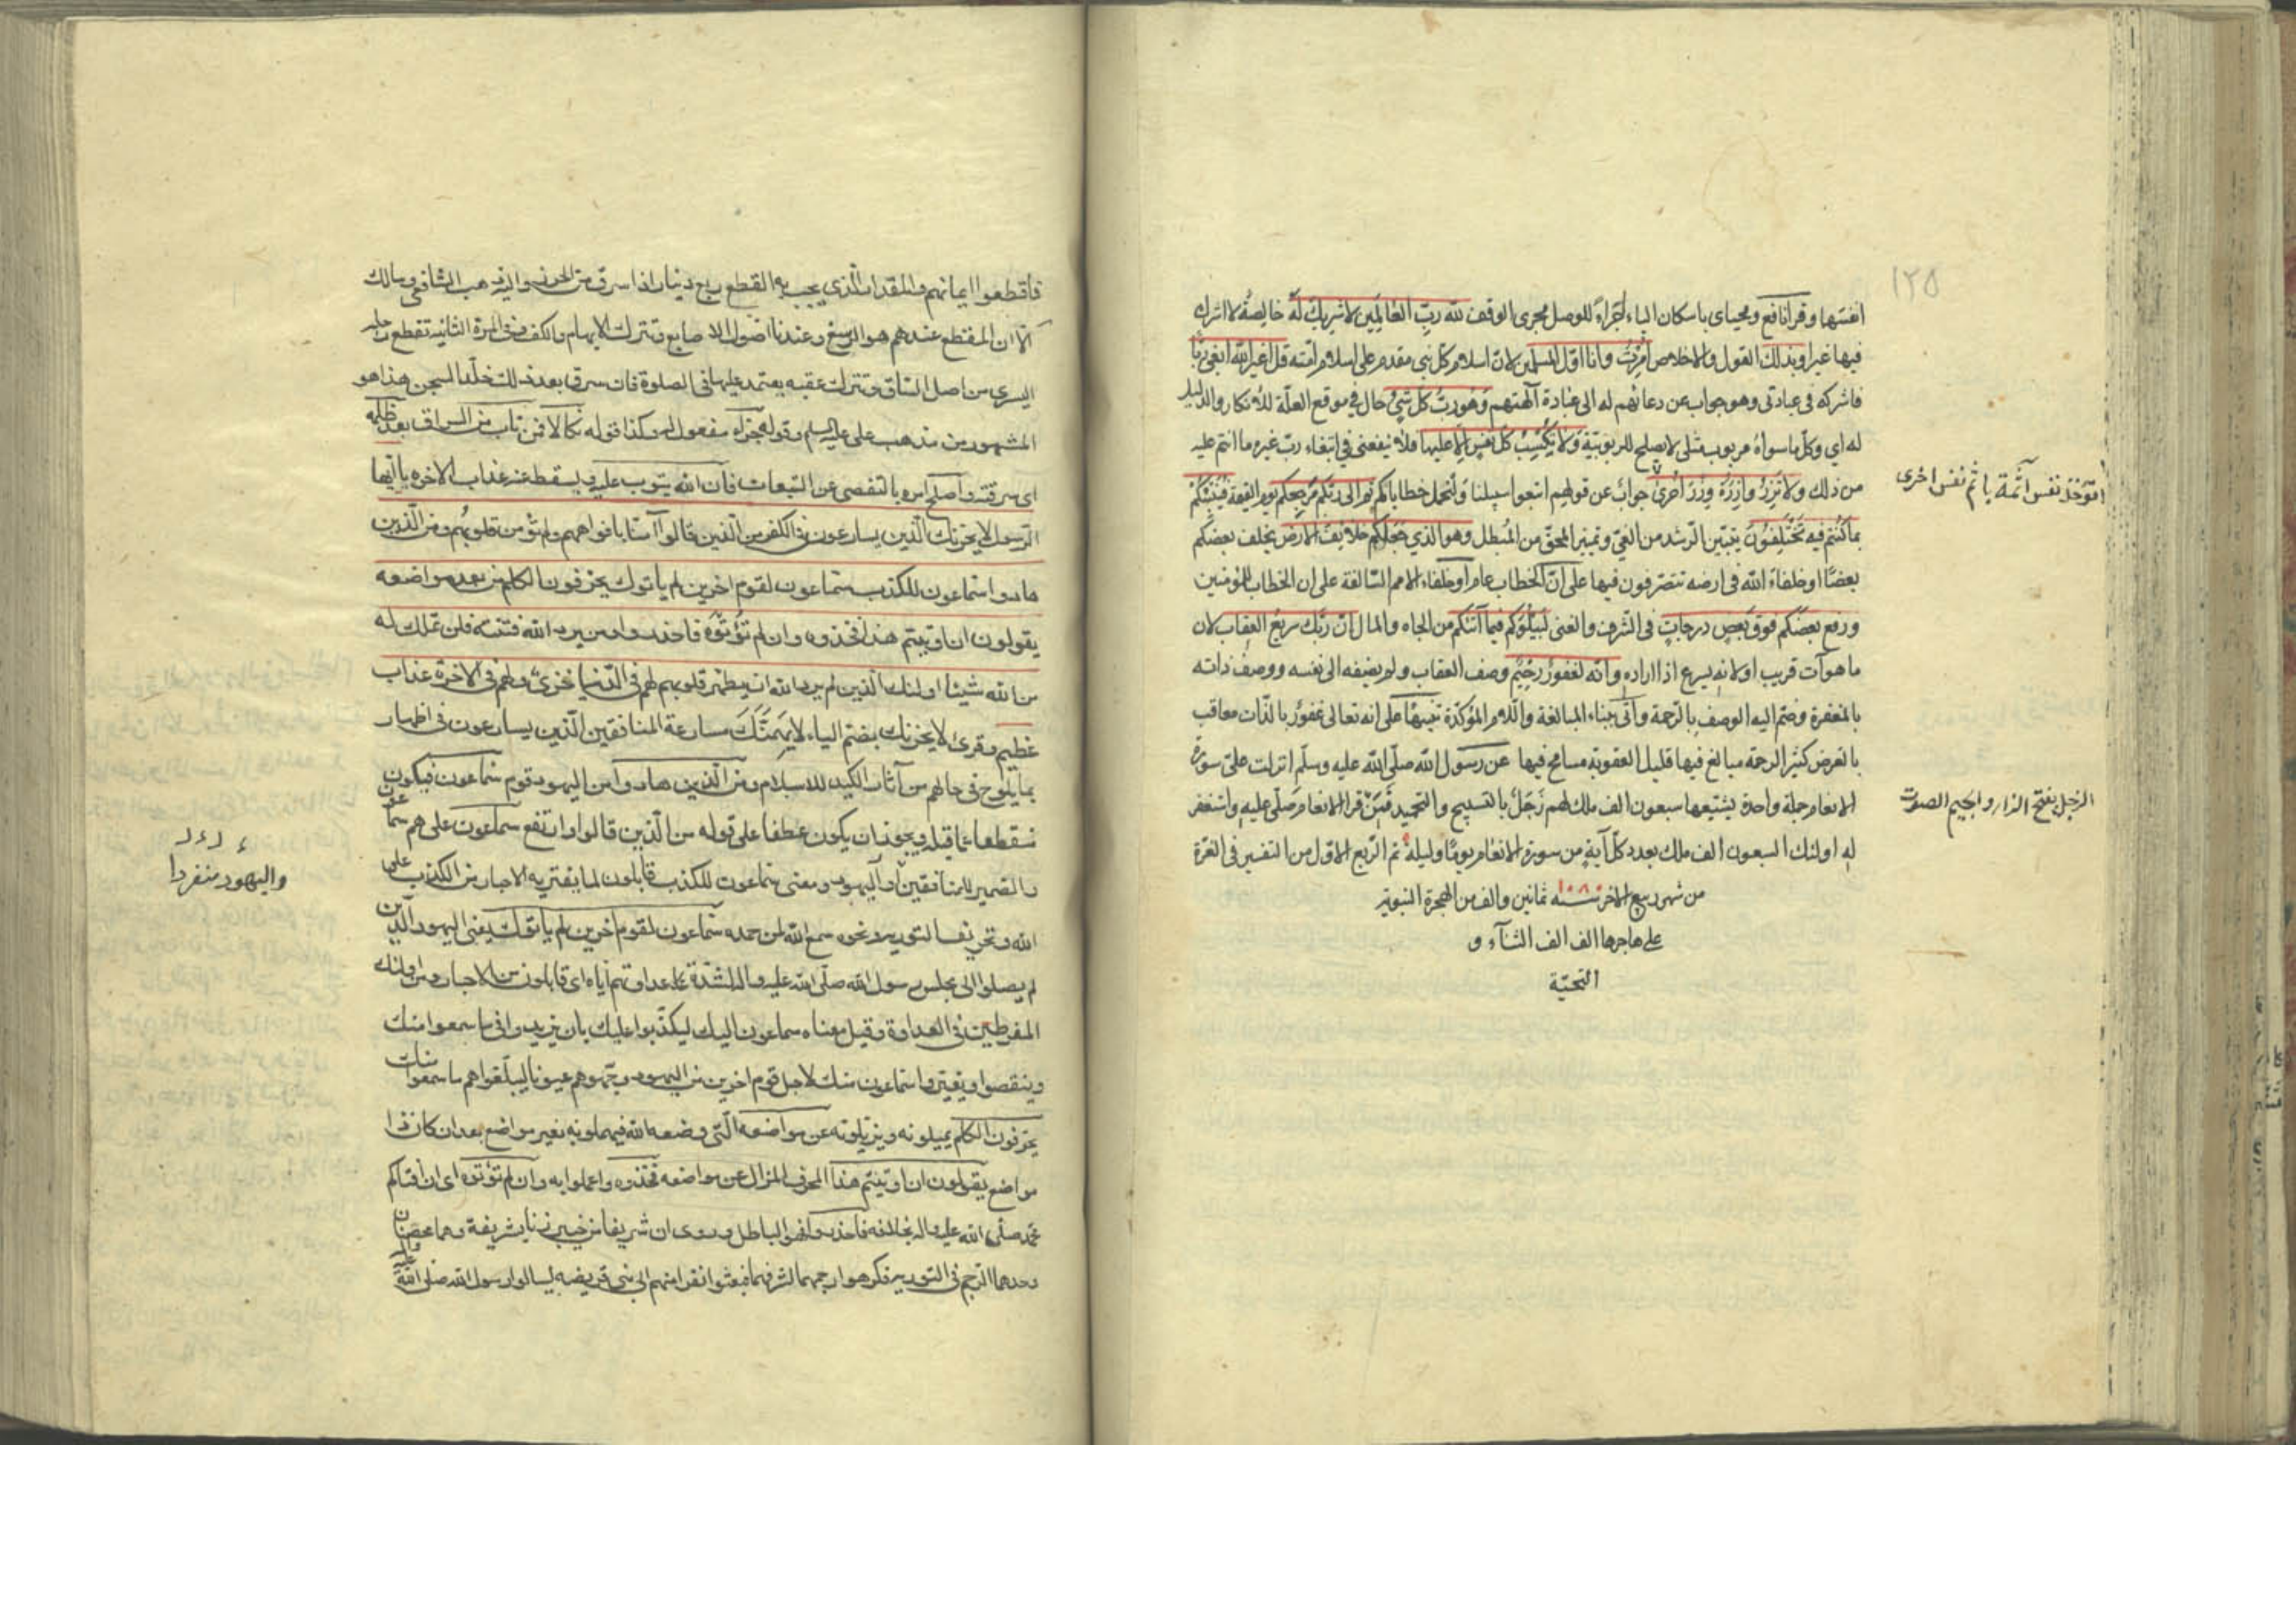 ١٢٥
افتتها وقرأ نافع ومحياى باسكان الياء اجراءً للوصل مجرى الوقف لله ربّ العالمين لا شريك له خالصة لا اشرك
فيها غيرا وبذلك القول والاخلاص امرت وانا اوّل المسلمين لانّ اسلام كلّ نبي مقدم على اسلام امّته قل اغير الله ابغى ربّا
فاشركه فى عبادتى وهو جواب عن دعائهم له الى عبادة آلهتهم وهو ربّ كل شيء حال في موقع العلّة للانكار والدليل
له اي وكلّ ما سواه مربوب مثلى لا يصلح للربوبيّة ولا تكسب كل نفس الا عليها فلا ينفعنى في ابتغاء ربّ غيره ما انتم عليه
من ذلك ولا تزر وازرة وزر اخرى جواب عن قولهم اتبعوا سبيلنا ولنحمل خطاياكم ثم الى ربكم مرجعكم يوم القيمة فينبئكم
بما كنتم فيه تختلفون بتبيّن الرّشد من الغيّ وتمييز المحقّ من المبطل وهو الذي جعلكم خلائف الارض يخلف بعضكم
بعضًا او خلفاء الله فى ارضه تتصرفون فيها على انّ الخطاب عام او خلفاء الامم السّالفة على ان الخطاب للمؤمنين
ورفع بعضكم فوق بعض درجات فى الشرف والغنى ليبلوكم فيما آتاكم من الجاه والمال انّ ربّك سريع العقاب لان
ما هو آت قريب او لانه يسرع اذا اراده وانّه لغفور رحيم وصف العقاب ولم يضفه الى نفسه ووصف ذاته
بالمغفرة وضمّ اليه الوصف بالرّحمة وأتى ببناء المبالغة واللّام المؤكدّة تنبيهًا على انه تعالى غفور بالذّات معاقب
بالعرض كثير الرحمة مبالغ فيها قليل العقوبة مسامح فيها عن رسول الله صلّى الله عليه وسلّم انزلت علىّ سورة
الانعام جملة واحدة يشيّعها سبعون الف ملك لهم زجل بالتسبيح والتحميد فمن قرأ الانعام صلّى عليه واستغفر
له اولئك السبعون الف ملك بعدد كلّ آية من سورة الانعام يومًا وليلة تم الرّبع الاوّل من التفسير فى الغرّة
من شهر ربيع الاخر سنة ١٠٨٠ ثمانين والف من الهجرة النبوية
على هاجرها الف الف الثناء و
التحيّة
اتؤخذ نفس آثمة باثم نفس اخرى
الزجل بفتح الزاء والجيم الصوت
فاقطعوا ايمانهم والمقدار الّذي يجب به القطع ربع دينار اذا سرق من الحرز واليه ذهب الشافعى ومالك
الّا ان المقطع عندهم هو الرسغ وعندنا اصول الاصابع وتترك الابهام والكف وفى المرة الثانية تقطع رجله
اليسرى من اصل السّاق وتترك عقبه يعتمد عليها فى الصلوة فان سرق بعد ذلك خلّد السجن هذا هو
المشهور من مذهب على عليه السلم وقوله جزاء مفعول له وكذا قوله نكالا فمن تاب من السراق بعد ظلمه
اى سرقته واصلح امره بالتفصى عن التبعات فانّ الله يتوب عليه ويسقط عنه عذاب الاخره يا ايّها
الرّسول لا يحزنك الّذين يسارعون فى الكفر من الّذين قالوا آمنّا بافواههم ولم تؤمن قلوبهم ومن الّذين
هادوا سمّاعون للكذب سمّاعون لقوم اخرين لم ياتوك يحرّفون الكلم من بعد مواضعه
يقولون ان اوتيتم هذا فخذوه وان لم تؤتوه فاحذروا ومن يرد الله فتنته فلن تملك له
من الله شيئًا اولئك الّذين لم يرد الله ان يطهّر قلوبهم لهم فى الدّنيا خزىٌ ولهم فى الاخرة عذاب
عظيم وقرئ لا يحزنك بضمّ الياء لا يهمّنّك مسارعة المنافقين الّذين يسارعون فى اظهار
بما يلوح فى حالهم من آثار الكيد للاسلام ومن الّذين هادوا من اليهود قوم سمّاعون فيكون
منقطعا عمّا قبله ويجوز ان يكون عطفا على قوله من الّذين قالوا وارتفع سمّاعون على هم سمّاعون
والضمير للمنافقين او اليهود ومعنى سمّاعون للكذب قابلون لما يفتريه الاحبار من الكذب على
الله وتحريف التورية ونحوه سمع الله لمن حمده سمّاعون لقوم آخرين لم يأتوك يعنى اليهود الّذين
لم يصلوا الى مجلس رسول الله صلّى الله عليه واله لشدّة عداوتهم ايّاه اى قابلون من الاحبار ومن اولئك
المفرطين فى العداوة وقيل معناه سماعون اليك ليكذّبوا عليك بان يزيدوا فى ما سمعوا منك
وينقصوا ويغيّروا سمّاعون منك لاجل قوم اخرين من اليهود وجّهوهم عيونا ليبلّغوا هم ما سمعوا منك
يحرّفون الكلم يميلونه ويزيلونه عن مواضعه الّتى وضعه الله فيهملونه بغير مواضع بعد ان كان ذا
مواضع يقولون ان اوتيتم هذا المحرف المزال عن مواضعه فخذوه واعملوا به وان لم تؤتوه اى ان افتاكم
محمّد صلّى الله عليه واله بخلافه فاحذروا فهو الباطل وروى ان شريفا من خيبر زنا بشريفة وهما محصنان
وحدهما الرّجم فى التورية فكرهوا رجمهما لشرفهما فبعثوا نفرا منهم الى بنى قريضه ليسالوا رسول الله صلى الله عليه واله
واليهود منفردا